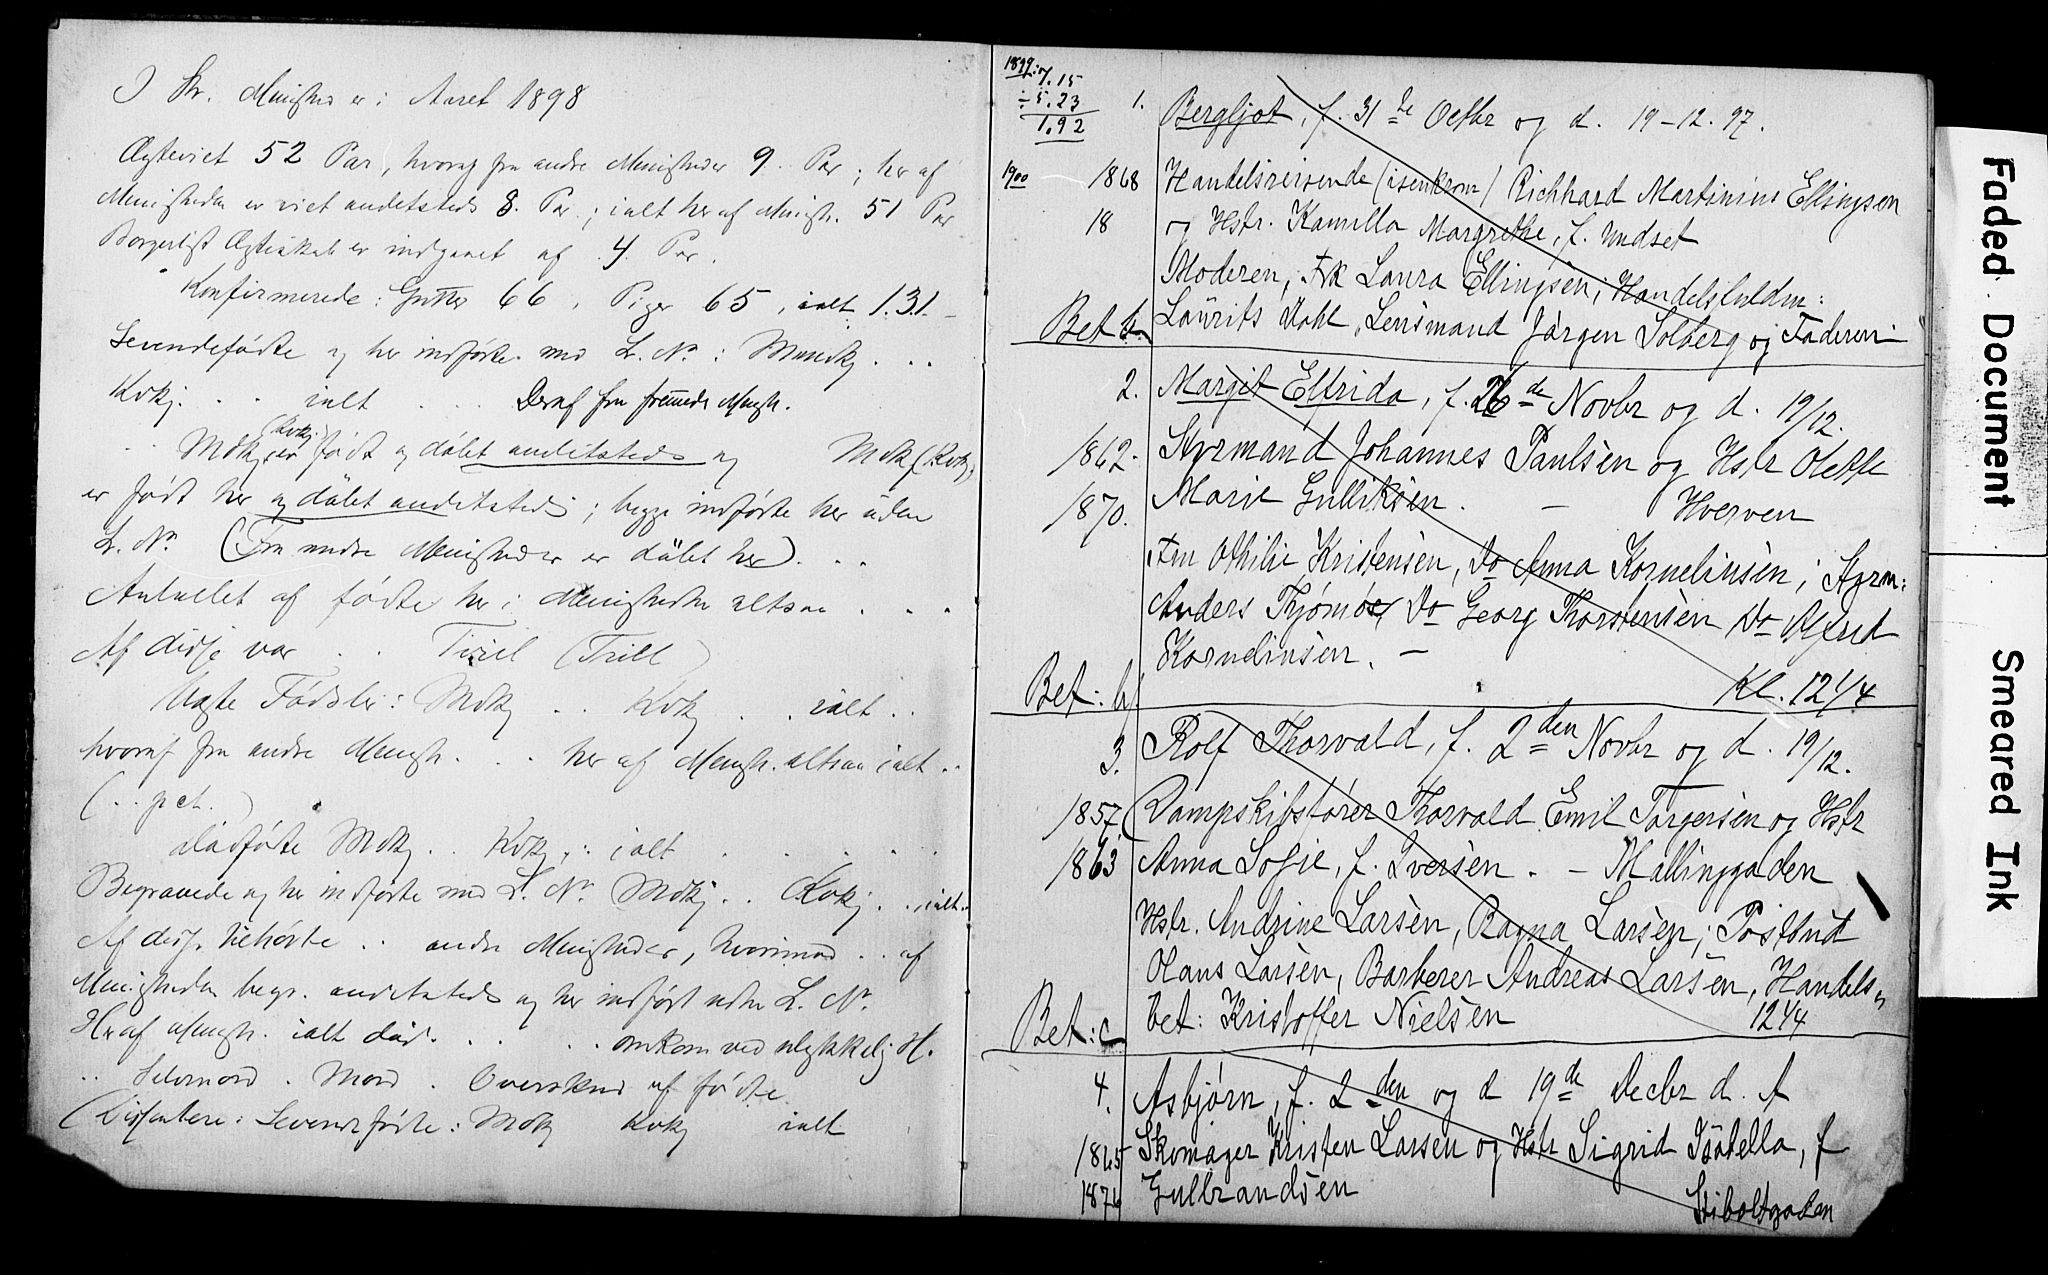 I Kr. Menighed er i Aaret 1898
Ægteviet 52 Par, hvoraf fra andre Menigheder 9 Par; her af
Menigheden er viet andetsteds 8. Par; ialt her af Menigh. 51 Par
Borgerligt Ægteskab er indgaaet af 4 Par.
Konfirmerede: Gutter 66, Piger 65, ialt 131.
Levendefødte og her indførte med L. No: Mandkj. . . .
Kvkj. . . ialt . . Deraf fra fremede Mengh.
Mdkj. (Kvkj.) er født og døbt andetsteds og Mdkj (Kvkj.)
er født her og døbt andetsteds; begge indførte her uden
L. No. (Fra andre Menigheder er døbt her) . . .
Antallet af fødte her i Menigheden altsaa . . .
Af disse var . . Tvil (Trill )
Uægte Fødsler: Mdkj . . Kvkj . . ialt . .
hvoraf fra andre Mengh. . . her af Mengh. altsaa ialt . .
( . . pct. )
Dødfødte Mdkj . . Kvkj . : ialt . . . .
Begravede og her indførte med L. No. Mdkj . . Kvkj . . , ialt . .
Af disse tilhørte . . andre Menigheder, hvorimod . . af
Menigheden begr. andetsteds og her indført uden L. No.
Her af Mengh. ialt død. . . . omkom ved ulykkelig H.
. . Selvmord . Mord . Overskud af fødte.
(Dissentere: Levendefødte: Mdkj Kvkj ialt
1899: 7.15
÷ 5.23
1.92
1900
1. Bergljot, f. 31te Octbr og d. 19-12. 97.
1868 Handelsreisende (isenkram) Richhard Martinius Ellingsen
18 og Hstr. Kamilla Margrethe, f. Undset
Moderen, Frk Laura Ellingsen; Handelsfuldm:
Bet Laurits Dahl, Lensmand Jørgen Solberg og Faderen
2. Margit Elfrida, f. 26de Novbr og d. 19/12.
1862. Styrmand Johannes Paulsen og Hstr Olette
1870. Marie Gulliksen. — Hverven
Fru Othilie Kristensen, Do Anna Kornelinsen; Styrm:
Anders Thjømøe, Do Georg Thorstensen Do Alfred
Kornelinsen. —
Bet: Kl. 12 1/4
3. Rolf Thorvald, f. 2den Novbr og d. 19/12.
1857. Dampskibsfører Thorvald Emil Torgersen og Hstr
1863 Anna Sofie, f. Iversen. — Mallinggaden
Hstr. Andrine Larsen, Ragna Larsen; Postbud
Hans Larsen, Barberer Andreas Larsen, Handels-
Bet: c bet: Kristoffer Nielsen 12 1/4
4. Asbjørn, f. 2den og d 19de Decbr d. A
1865 Skomager Kristen Larsen og Hstr Sigrid Isabella, f
1874 Gulbrandsen
Stiboltgaden
Faded Document
Smeared Ink